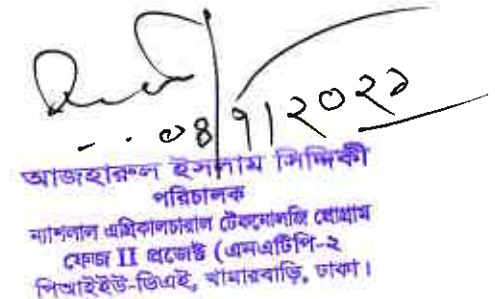 ০৪/৭/২০২১
আজহারুল ইসলাম সিদ্দিকী
পরিচালক
ন্যাশনাল এগ্রিকালচারাল টেকনোলজি প্রোগ্রাম
ফেজ II প্রজেক্ট (এনএটিপি-২
পিআইইউ-ডিএই, খামারবাড়ি, ঢাকা।